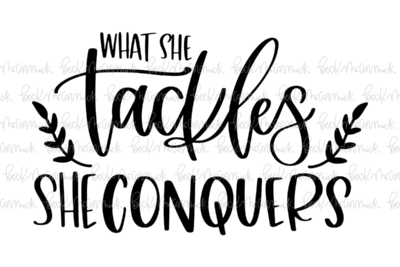 WHAT SHE
tackles
SHE CONQUERS